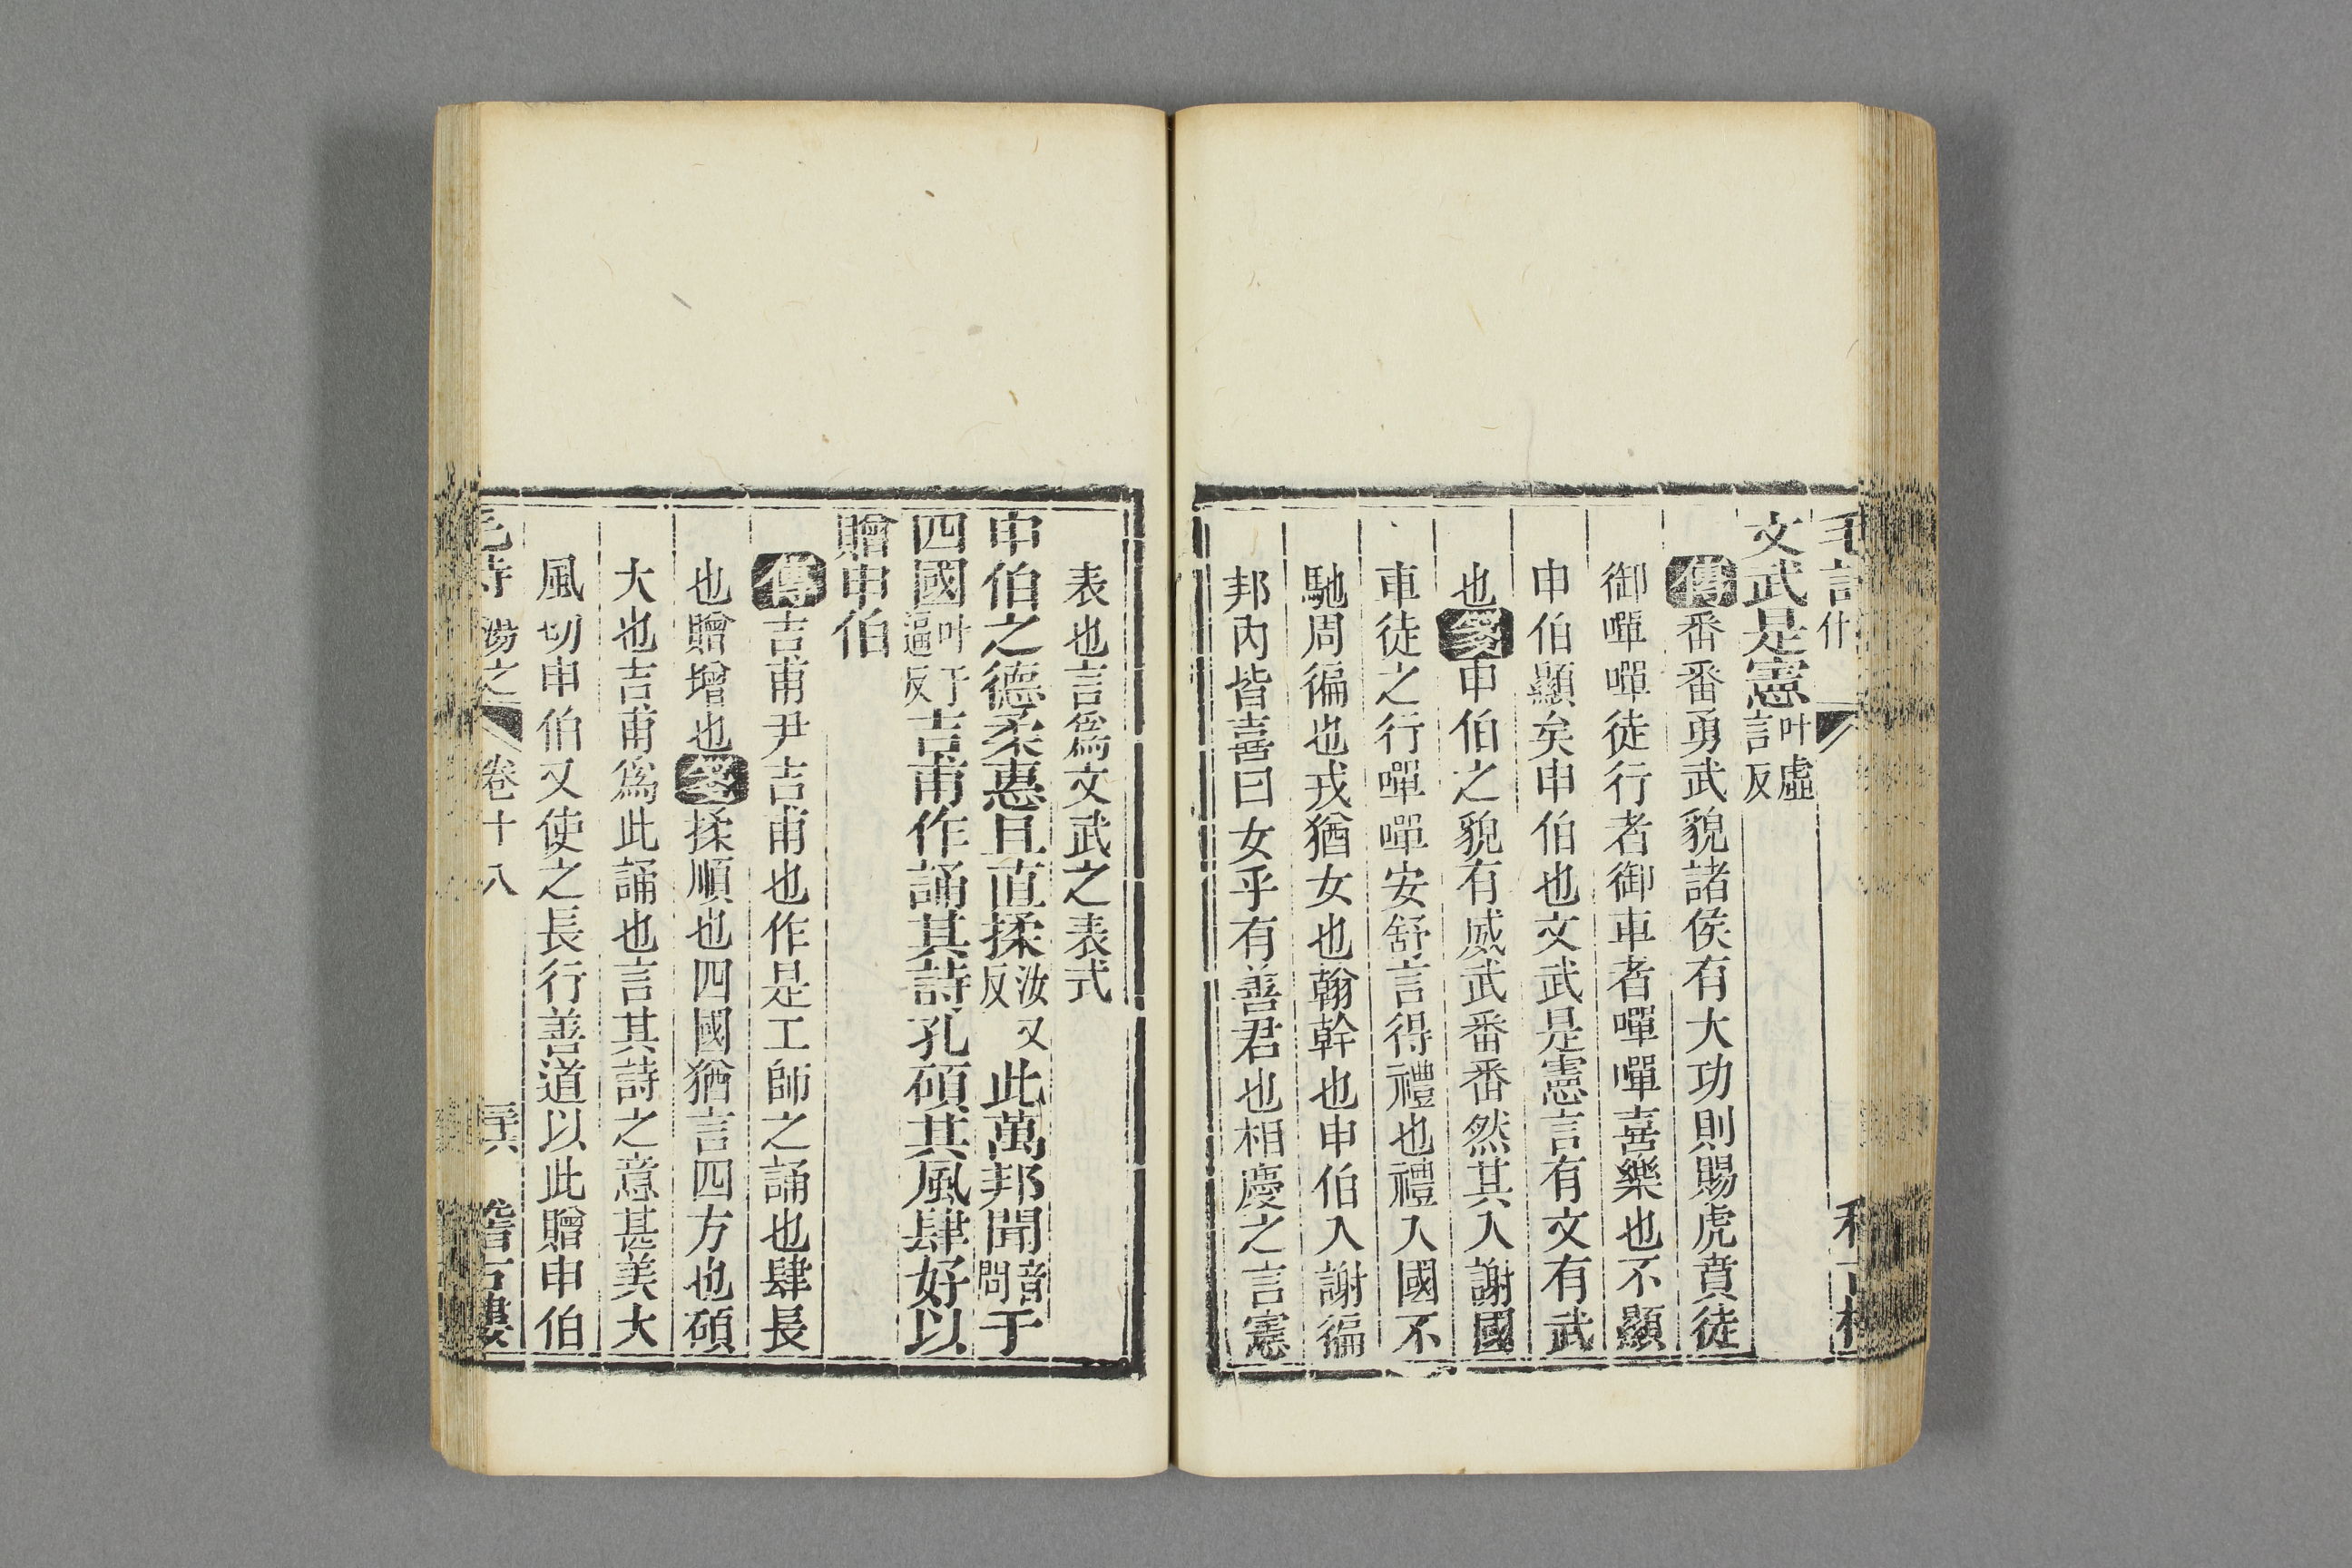 文武是憲叶虛言反
傳番番勇武貌諸侯有大功則賜虎賁徒
御嘽嘽徒行者御車者嘽嘽喜樂也不顯
申伯顯矣申伯也文武是憲言有文有武
也箋申伯之貌有威武番番然其入謝國
車徒之行嘽嘽安舒言得禮也禮入國不
馳周徧也戎猶女也翰幹也申伯入謝徧
邦內皆喜曰女乎有善君也相慶之言憲
表也言為文武之表式
申伯之德柔惠且直揉汝又反此萬邦聞音問于
四國叶于逼反吉甫作誦其詩孔碩其風肆好以
贈申伯
傳吉甫尹吉甫也作是工師之誦也肆長
也贈增也箋揉順也四國猶言四方也碩
大也吉甫為此誦也言其詩之意甚美大
風切申伯又使之長行善道以此贈申伯
毛詩 蕩之 卷十八